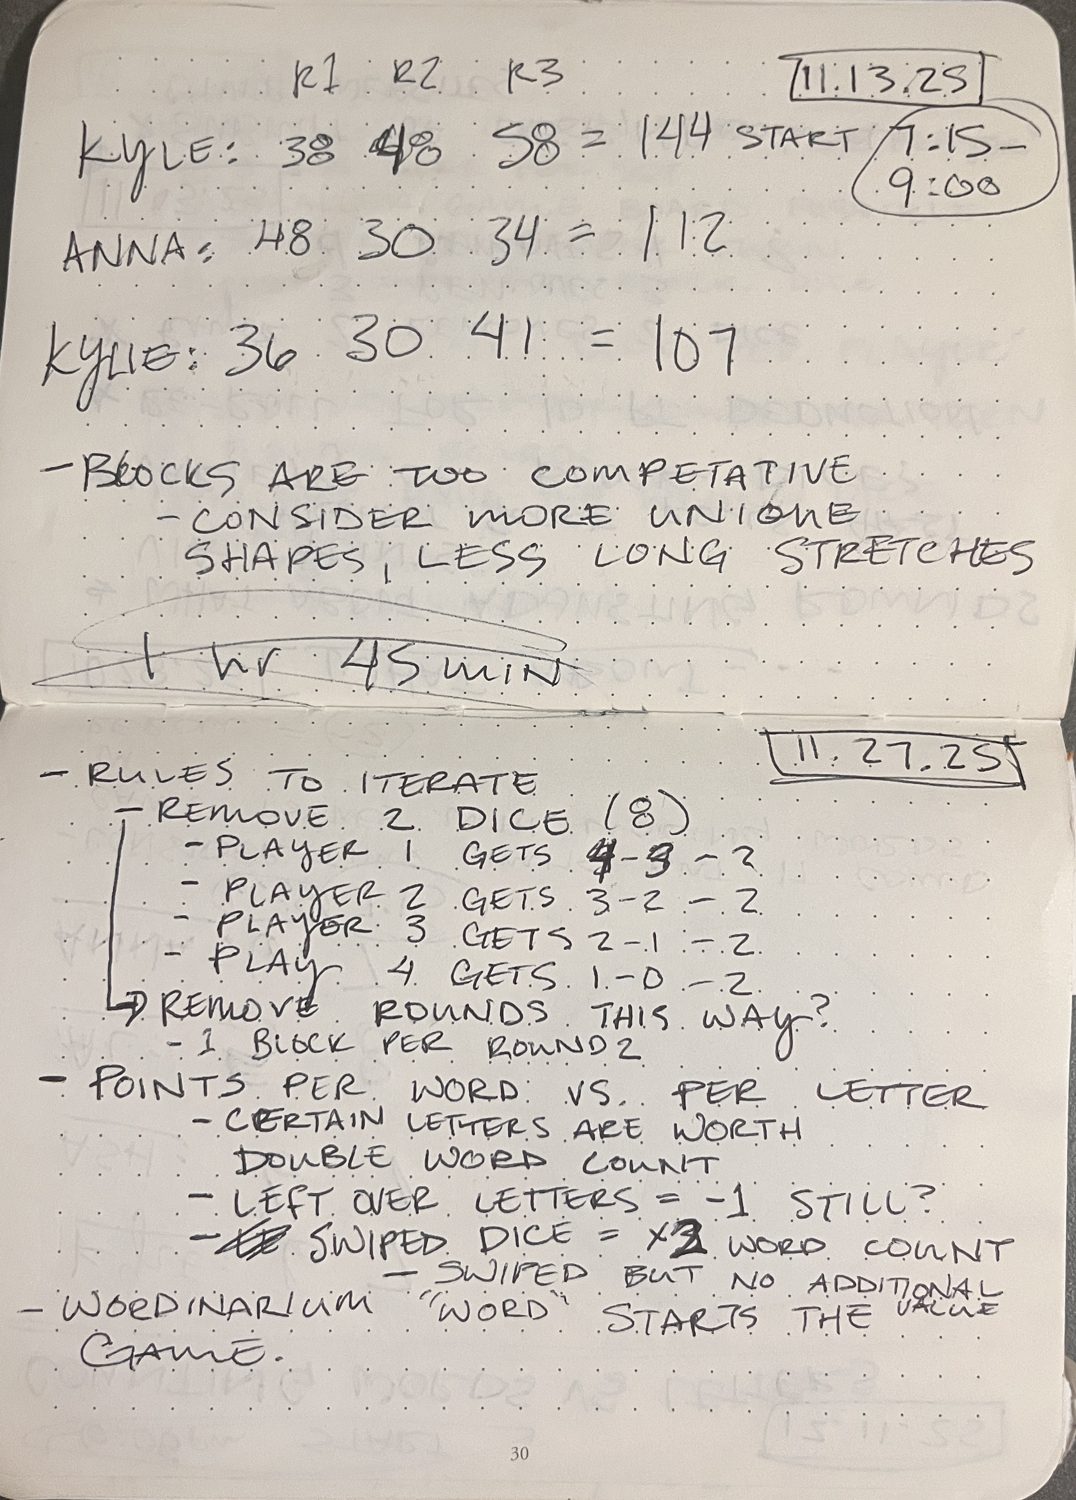 R1 R2 R3
11.13.25
KYLE: 38 48 58 = 144 START 7:15-
9:00
ANNA: 48 30 34 = 112
KYLIE: 36 30 41 = 107
- BLOCKS ARE TOO COMPETATIVE
- CONSIDER MORE UNIQUE
SHAPES, LESS LONG STRETCHES
1 hr 45 MIN
11.27.25
- RULES TO ITERATE
- REMOVE 2 DICE (8)
- PLAYER 1 GETS 4-3-2
- PLAYER 2 GETS 3-2-2
- PLAYER 3 GETS 2-1-2
- PLAY 4 GETS 1-0-2
→ REMOVE ROUNDS THIS WAY?
- 1 BLOCK PER ROUND 2
- POINTS PER WORD VS. PER LETTER
- CERTAIN LETTERS ARE WORTH
DOUBLE WORD COUNT
- LEFT OVER LETTERS = -1 STILL?
- SWIPED DICE = x2 WORD COUNT
- SWIPED BUT NO ADDITIONAL
VALUE
- WORDINARIUM "WORD" STARTS THE
GAME.
30